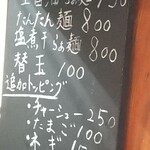 だんだん麺 800
塩煮干らぁ麺 800
替玉 100
追加トッピング
・チャーシュー 250
・たまご 100
・ネギ 15